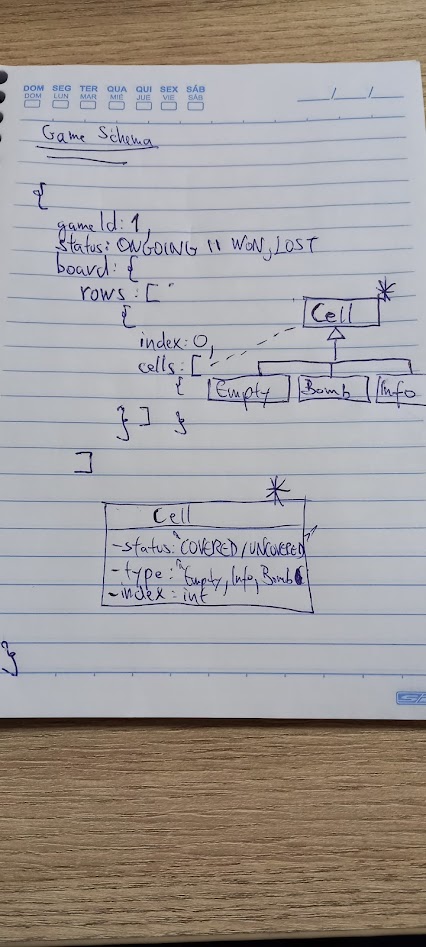 DOM SEG TER QUA QUI SEX SÁB
DOM LUN MAR MIÉ JUE VIE SÁB
__/__/__
Game Schema
{
gameId: 1,
status: ONGOING || WON, LOST
board: {
rows: [
{
index: 0,
cells: [
{
} ] }
]
Cell *
Empty Bomb Info
*
Cell
- status: COVERED/UNCOVERED
- type: Empty, Info, Bomb
- index: int
}